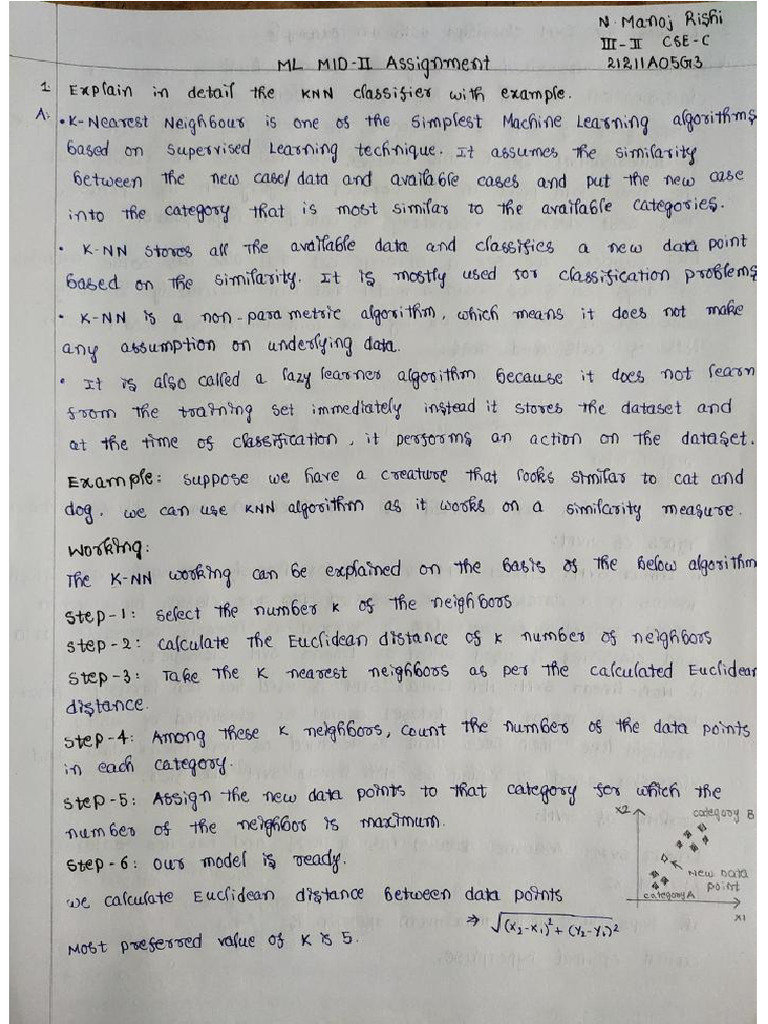 N. Manoj Rishi
III-II CSE-C
ML MID-II Assignment
21211A05G3
1 Explain in detail the KNN classifier with example.
A. • K-Nearest Neighbour is one of the simplest Machine Learning algorithms
based on Supervised Learning technique. It assumes the similarity
between the new case/data and available cases and put the new case
into the category that is most similar to the available categories.
• K-NN stores all the available data and classifies a new data point
based on the similarity. It is mostly used for classification problems
• K-NN is a non-parametric algorithm, which means it does not make
any assumption on underlying data.
• It is also called a lazy learner algorithm because it does not learn
from the training set immediately instead it stores the dataset and
at the time of classification, it performs an action on the dataset.
Example: Suppose we have a creature that looks similar to cat and
dog. we can use KNN algorithm as it works on a similarity measure.
Working:
The K-NN working can be explained on the basis of the below algorithm
Step-1: Select the number K of the neighbors
Step-2: calculate the Euclidean distance of K number of neighbors
Step-3: Take the K nearest neighbors as per the calculated Euclidean
distance.
Step-4: Among these K neighbors, count the number of the data points
in each category.
Step-5: Assign the new data points to that category for which the
number of the neighbor is maximum.
Step-6: our model is ready.
we calculate Euclidean distance between data points
⇒ √(x₂-x₁)² + (y₂-y₁)²
Most preferred value of K is 5.
X2
category B
New Data
point
category A
X1